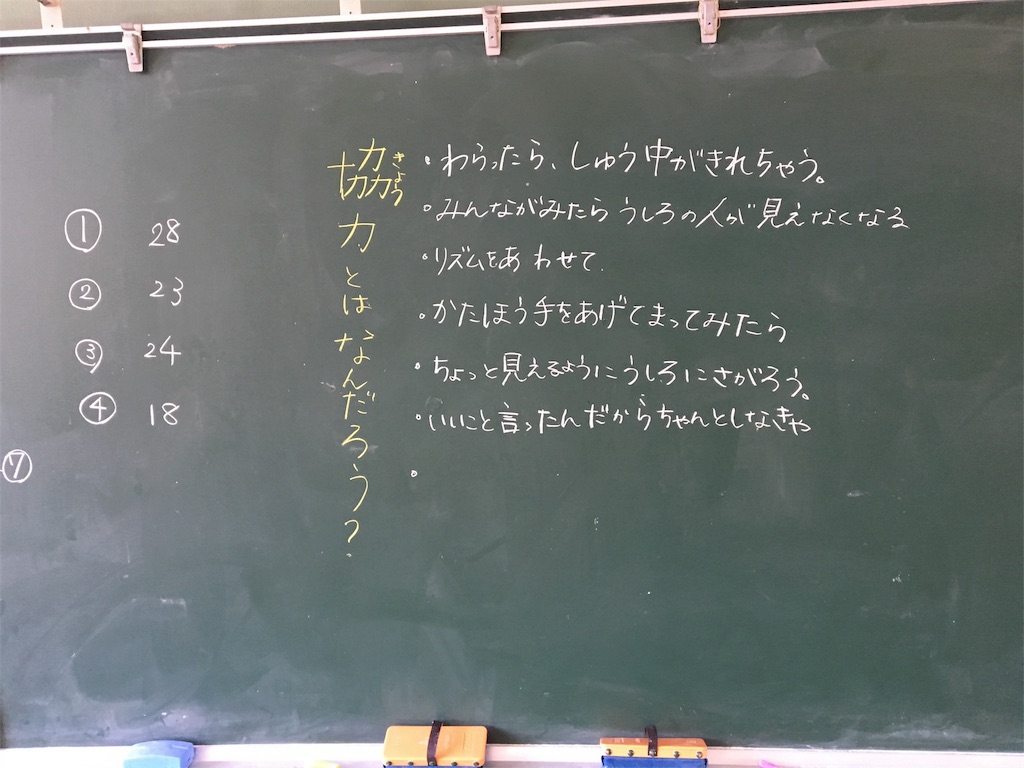 ① 28
② 23
③ 24
④ 18
⑦
協力とはなんだろう?
きょう
・わらったら、しゅう中がきれちゃう。
・みんながみたらうしろの人が見えなくなる
・リズムをあわせて.
・かたほう手をあげてまってみたら
・ちょっと見えるようにうしろにさがろう。
・いいにと言ったんだからちゃんとしなきゃ